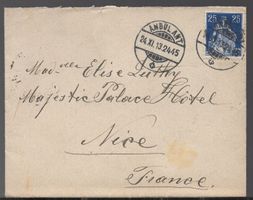 AMBULANT
24.XI.13.2445
25 25
Mad.elle Elise Luthy
Majestic Palace Hôtel
Nice
France.